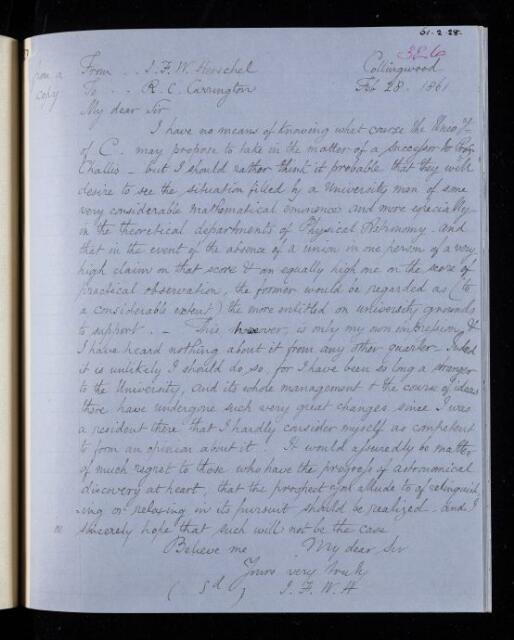 61.2.28.
326
from a
copy
From .. J. F. W. Herschel
Collingwood
To . . R. C. Carrington
Feb 28. 1861
My dear Sir
I have no means of knowing what course the Univ.
of C. may propose to take in the matter of a successor to Prof.
Challis - but I should rather think it probable that they will
desire to see the situation filled by a University man of some
very considerable mathematical eminence and more especially
in the theoretical departments of Physical Astronomy. and
that in the event of the absence of a union in one person of a very
high claim on that score & an equally high one on the score of
practical observation, the former would be regarded as (to
a considerable extent) the more entitled on university grounds
to support. - This however, is only my own impression, &
I have heard nothing about it from any other quarter - Indeed
it is unlikely I should do so, for I have been so long a stranger
to the University, and its whole management & the course of ideas
there have undergone such very great changes since I was
a resident there that I hardly consider myself as competent
to form an opinion about it. It would assuredly be matter
of much regret to those who have the progress of astronomical
discovery at heart, that the prospect you allude to of relinquish
-ing or relaxing in its pursuit should be realized. and I
sincerely hope that such will not be the case
Believe me My dear Sir
Yours very truly
(Sd) J. F. W. H